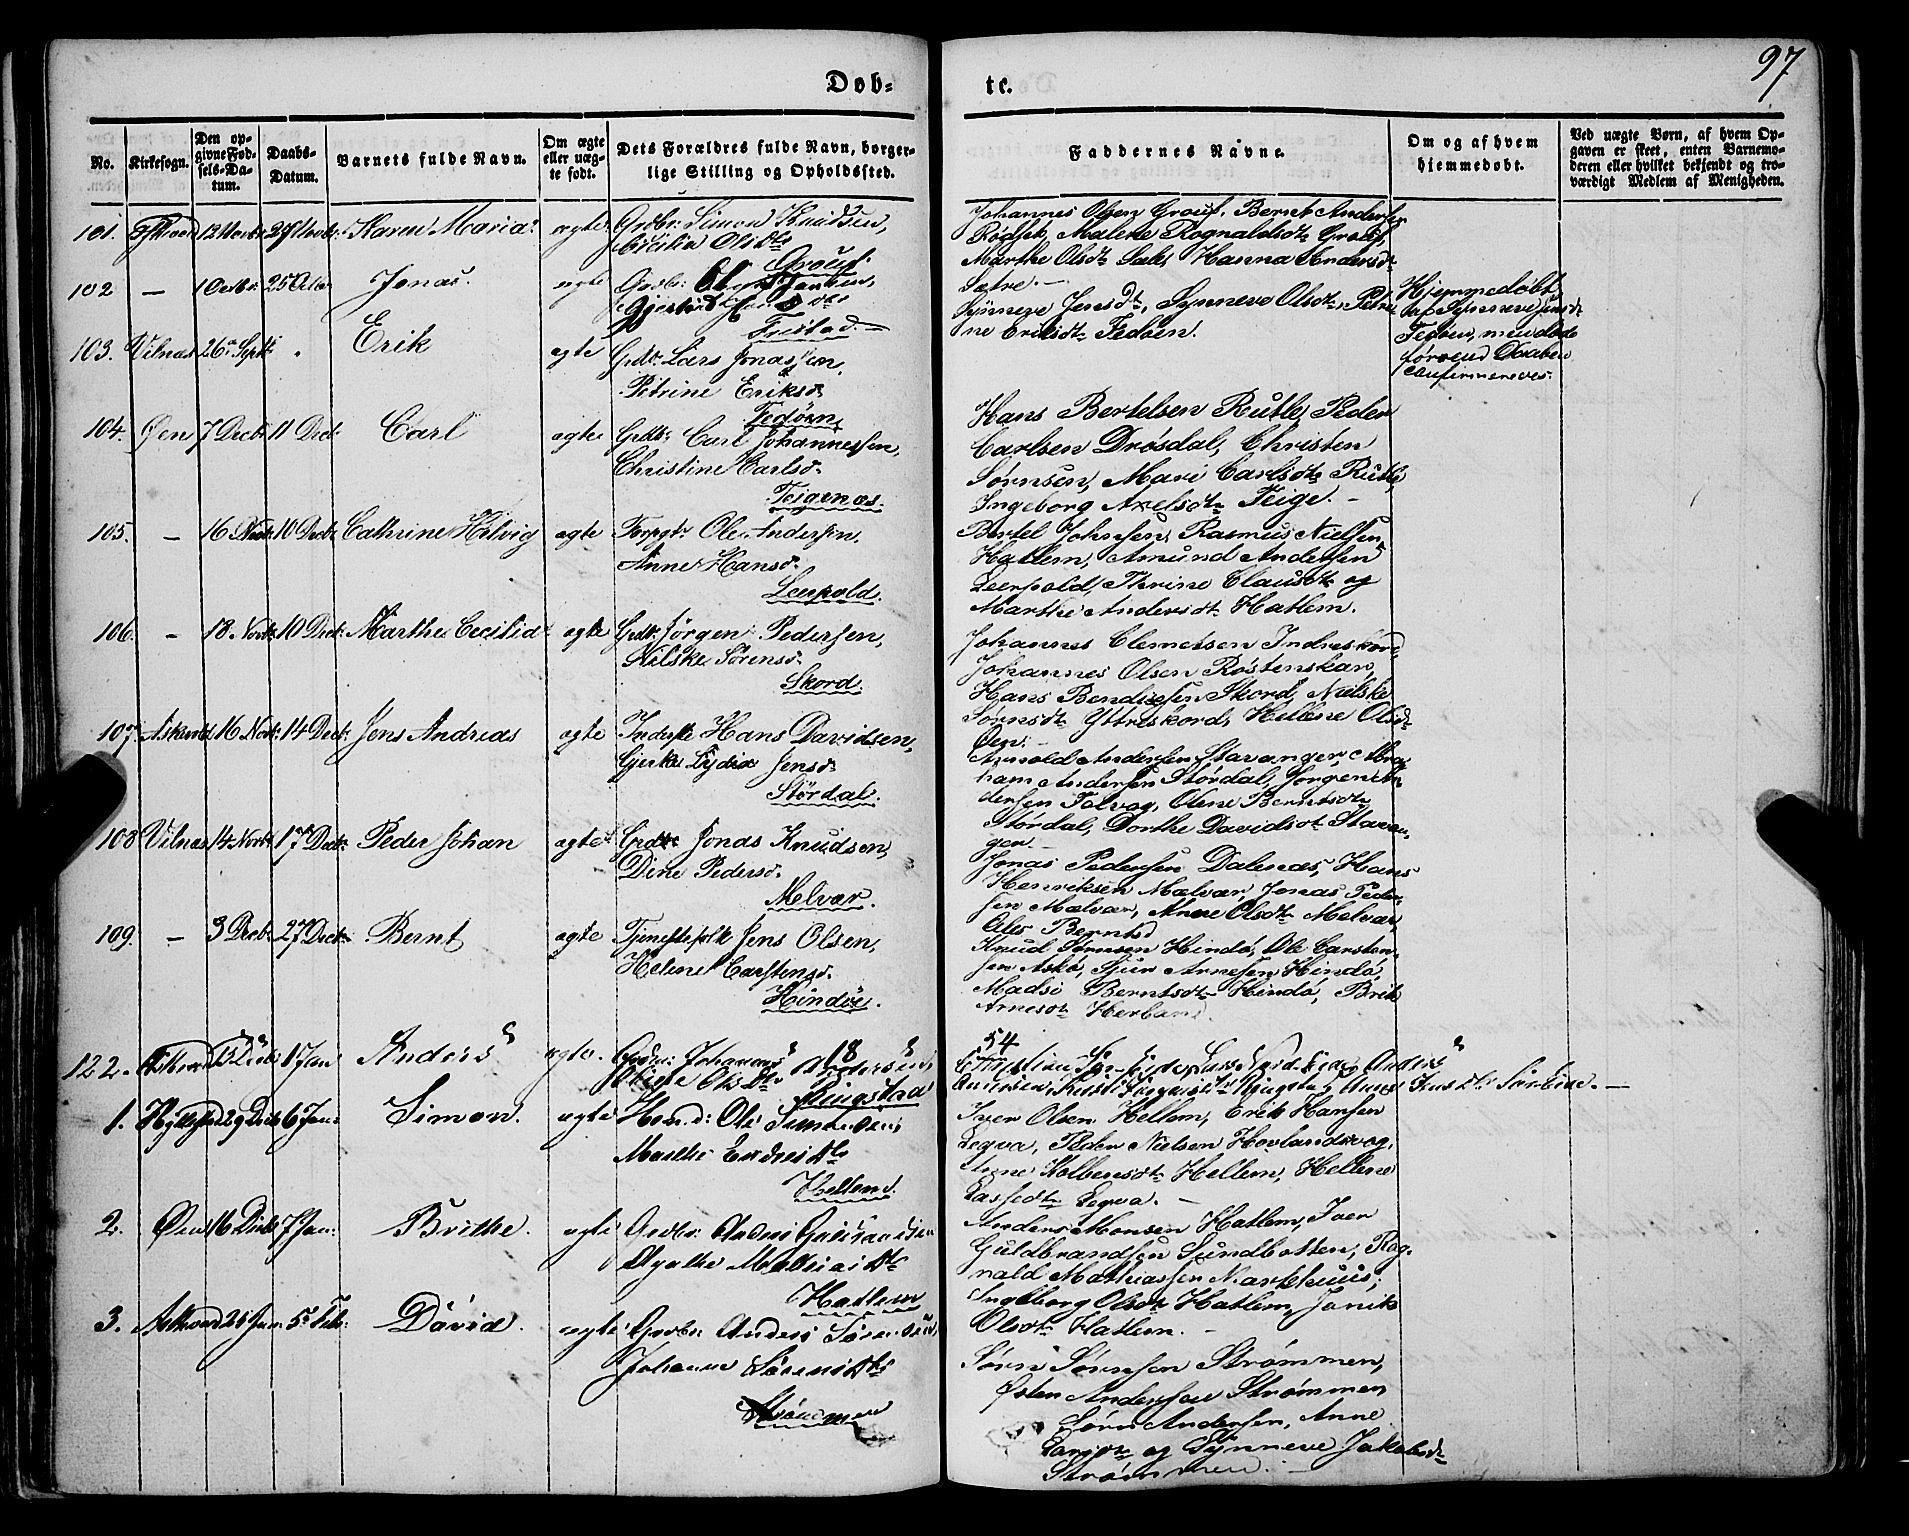 97
Døb-
te.
No.
Kirkesogn.
Den op-
givne Fød-
sels-Da-
tum.
Daabs-
Datum.
Barnets fulde Navn.
Om ægte
eller uæg-
te født.
Dets Forældres fulde Navn, borger-
lige Stilling og Opholdssted.
Faddernes Navne.
Om og af hvem
hjemmedøbt.
Ved uægte Børn, af hvem Op-
gaven er skeet, enten Barnemo-
deren eller hvilket bekjendt og tro-
værdigt Medlem af Menigheden.
101. 12 Novbr: 27 Novbr: Karen Maria ægte Grdbr: Simon Knudsen,
Olsdtr
Johannes Olsen Bernt Andersen
Malene Rognaldsdtr
Marthe Olsdtr Hanna Andersdtr
Sætre.
102 — 1 Octbr: 25 Octbr Jonas. ægte Grdbr:
Synneve Jensdtr, Synneve Olsdtr, Petri-
ne Eriksdtr Tedøen.
Hjemmedøbt
af Synneve Jensdtr
Tedøen, men døde
førend Daaben
confirmeredes.
103. Vilnæs 26 Septb: Erik ægte Grdbr: Lars Jonassen,
Petrine Eriksd.
Tedøen
104. Øen 7 Decb: 11 Decb: Carl ægte Grdbr: Carl Johannessen,
Christine Carlsd.
Teigenæs.
Hans Bertelsen Rutle, Peder
Carlsen Drøsdal, Christen
Sørnsen, Mari Carlsdtr Rutle,
Ingeborg Axelsdtr Teige. —
105. — 16 Novb: 10 Decb: Cathrine Helvig ægte Forpgtr Ole Andersen,
Anne Hansd.
Leerpold.
Bertel Johnsen, Rasmus Nielsen
Hatlem, Amund Andersen
Leerpold, Thrine Clausdtr og
Marthe Andersdtr Hatlem.
106. — 18 Novb: 10 Decb: Marthe Cecilia ægte Grdbr: Jørgen Pedersen,
Nilske Sørensd.
Skord.
Johannes Clemetsen Indreskord,
Johannes Olsen Røstenskar,
Hans Bendixsen Skord, Nielske
Sørnsdtr Yttreskord, Hellene Olsdtr
Øen. —
107. Askvold 16 Novb: 14 Decb: Jens Andreas ægte Inderste Hans Davidsen,
Gjerke Lydia Jensd.
Størdal.
Arnold Andersen Stavanger, Abra-
ham Andersen Størdal, Jørgen An-
dersen Talvag, Olene Berntsdtr
Størdal, Dorthe Davidsdtr Stavan-
ger. —
108 Vilnæs 14 Novb: 17 Decb: Peder Johan ægte Grdbr: Jonas Knudsen,
Dine Pedersd.
Melvær.
Jonas Pedersen Dalenæs, Hans
Henriksen Melvær, Jonas Peder-
sen Melvær, Anne Olsdtr Melvær,
Berntsd
109. — 3 Decb: 27 Decb: Bernt ægte Tjenestefolk Jens Olsen,
Helene Carstensd.
Hindøe.
Knud Sørnsen Hindø, Ole Carsten-
sen Askø, Sjur Arnesen Hindø,
Madsi Berntsdtr Hindø, Brite
Arnesdtr Herland.
1854
122. Askvold 13 Decb 1 Jan Anders ægte. Grdbr: Johannes Andersen,
Olsdtr
Ringstad
1. Hyllestad 29 Decb 6 Jan: Simon. ægte Ole Simensen,
Marthe Endresdtr
Hellem.
Iver Olsen Hellem, Erik Hansen
Leqva, Peder Nielsen Hovlandsvag,
Anne Kolbensdtr Hellem, Hellene
Lassedtr Leqva. —
2. Øen 16 Decb 7 Jan: Brithe. ægte Grdbr: Anders
Mathiasdtr
Hatlem
Anders Monsen Hatlem, Iver
Guldbrandsen Sundbotten, Rag-
nald Mathiassen Markhuus,
Ingeborg Olsdtr Hatlem, Janik
Olsdtr Hatlem. —
3. Askvold 5 Feb: David. ægte Grdbr: Anders Sørensen,
Johanne Sørensdtr
Strømmen
Sørn Sørnsen Strømmen,
Østen Andersen Strømmen
Sørn Andersen, Anne
Larsdtr og Synneve Jakobsdtr
Strømmen. —